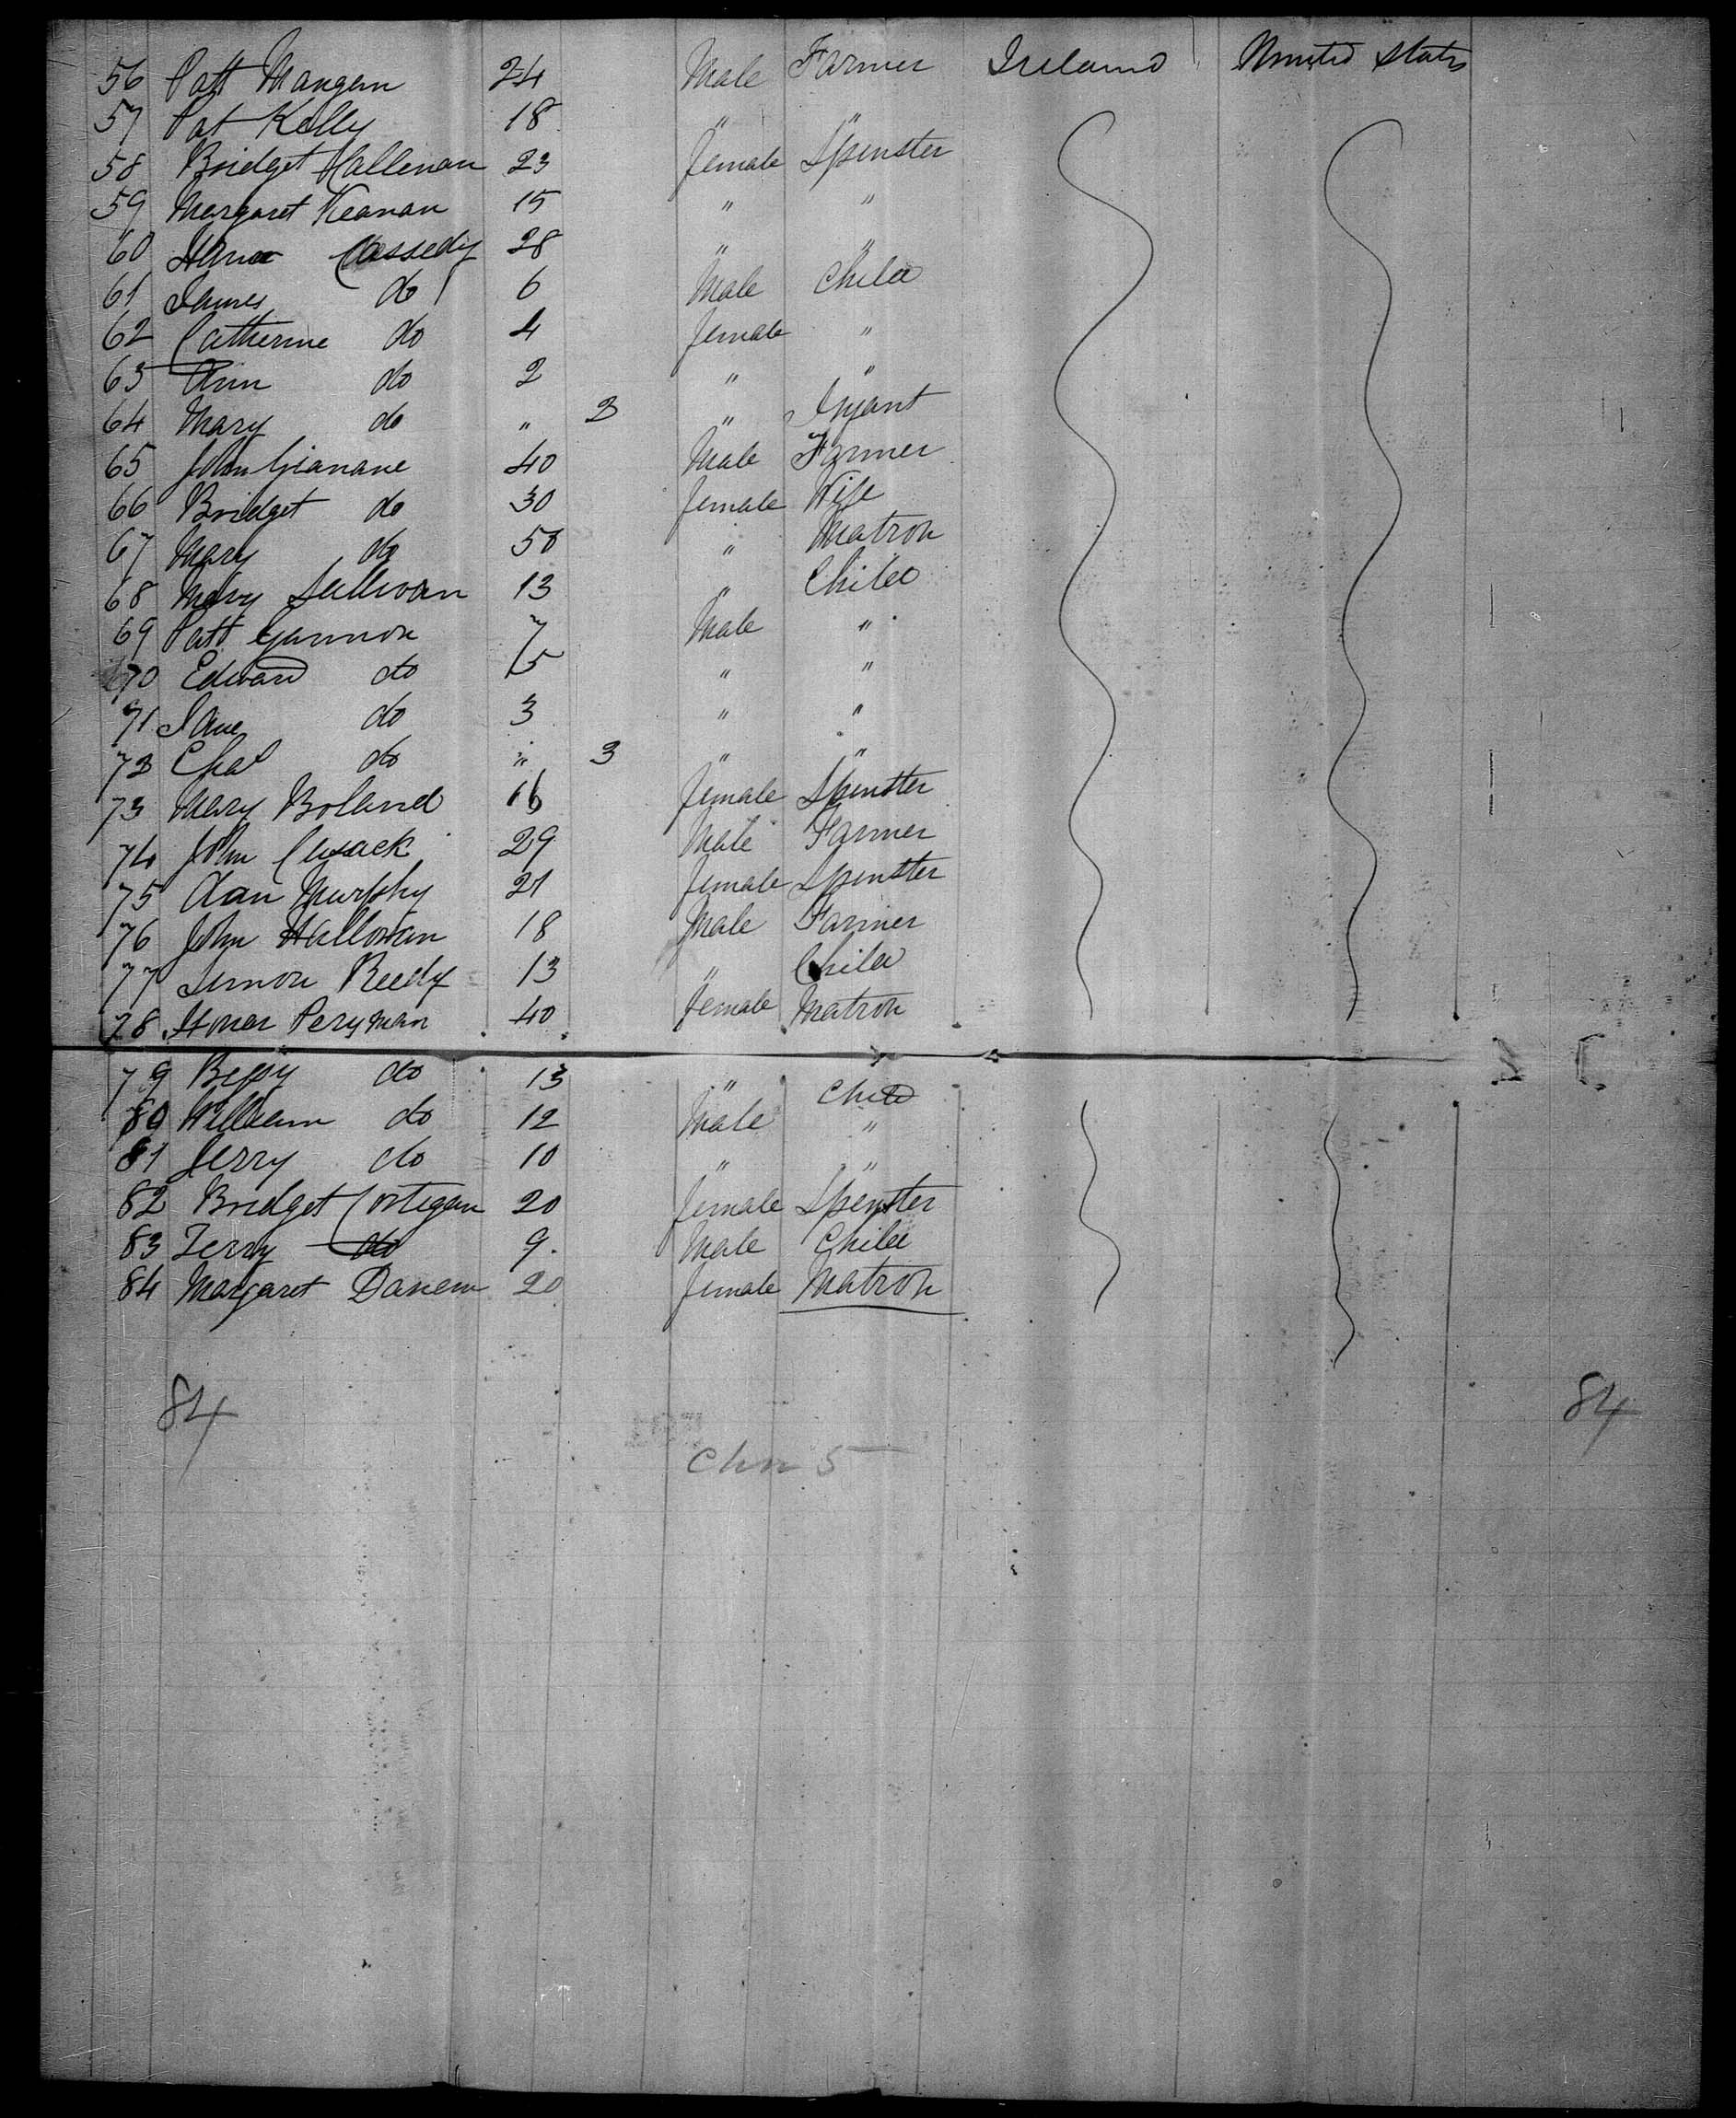 56 Patt Mangem 24 Male Farmer Ireland United States
57 Pat Kelly 18 " "
58 Bridget Hallenan 23 female Spinster
59 Margaret Keanan 15 " "
60 Hana Cassedy 28 " "
61 James do 6 Male Child
62 Catherine do 4 female "
63 Ann do 2 " "
64 Mary do " 2 " Infant
65 John Gianane 40 Male Farmer
66 Bridget do 30 female Wife
67 Mary do 50 " Matron
68 Mary Sullivan 13 " Child
69 Patt Gannon 7 Male "
70 Edward do 5 " "
71 Jane do 3 " "
72 Chas do " 3 " "
73 Mary Boland 16 female Spinster
74 John Cusack 29 Male Farmer
75 Ann Murphy 21 female Spinster
76 John Halloran 18 Male Farmer
77 Simon Reedy 13 " Child
78 Honer Peryman 40 female Matron
79 Bessy do 13 " Child
80 William do 12 Male "
81 Jerry do 10 " "
82 Bridget Cortegan 20 female Spenster
83 Terry do 9 Male Child
84 Margaret 20 female Matron
84 84
Chn 5